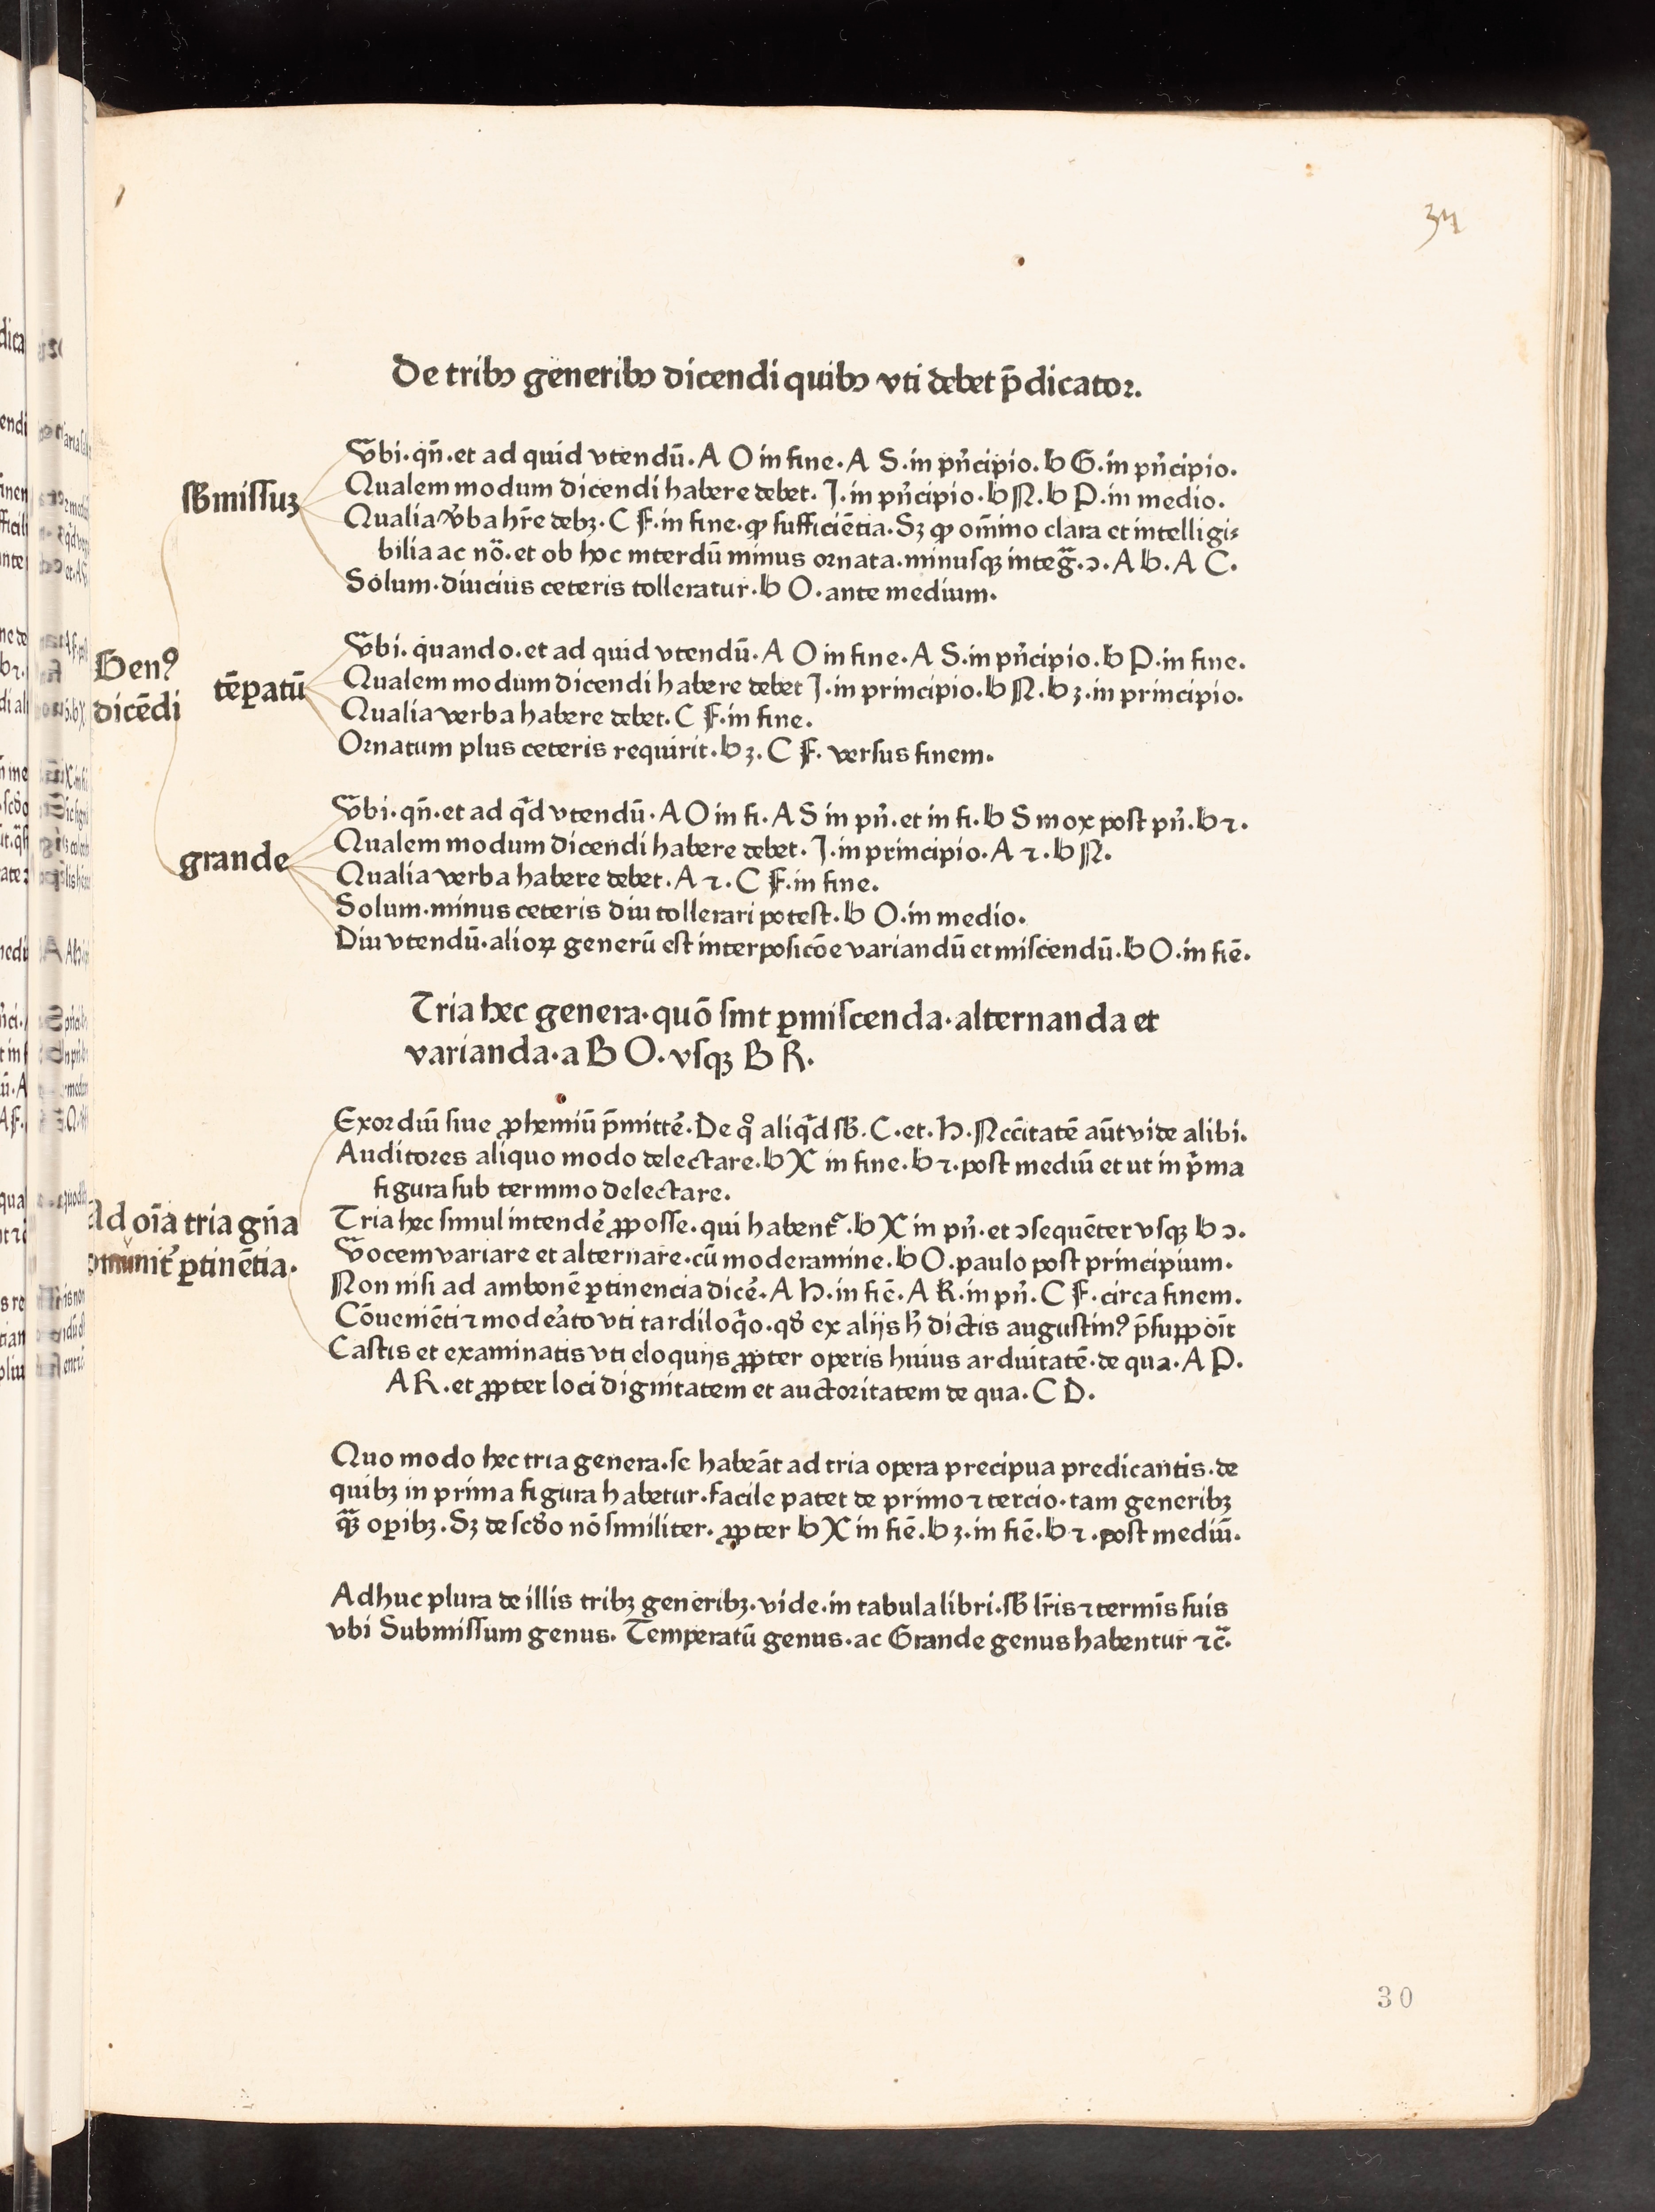 34
De tribꝫ generibꝫ dicendi quibꝫ vti debet p̄dicator.
Vbi· qn̄·et ad quid vtendū·A O in fine·A S·in pn̄cipio·b G·in pn̄cipio·
sb̄missuꝫ
Qualem modum dicendi habere debet· J·in pn̄cipio·b N·b P·in medio·
Qualia v̄ba hr̄e debꝫ·C F·in fine·ꝓ sufficiētia·Sꝫ ꝓ om̄ino clara et intelligi⸗
bilia ac nō·et ob hoc interdū minus ornata·minusqꝫ integ̃·ↄ·A b·A C·
Solum·diucius ceteris tolleratur·b O·ante medium·
Vbi·quando·et ad quid vtendū·A O in fine·A S·in pn̄cipio·b P·in fine·
Genꝰ
dicēdi
tēꝑatū
Qualem modum dicendi habere debet J·in principio·b N·b ꝫ·in principio·
Qualia verba habere debet·C F·in fine·
Ornatum plus ceteris requirit·b ꝫ·C F·versus finem·
Vbi·qn̄·et ad qͥd vtendū·A O in fi·A S in pn̄·et in fi·b S mox post pn̄·b ⁊·
grande
Qualem modum dicendi habere debet·J·in principio·A ⁊·b N·
Qualia verba habere debet·A ⁊·C F·in fine·
Solum·minus ceteris diu tollerari potest·b O·in medio·
Diu vtendū·alioꝝ generū est interposicōe variandū et miscendū·b O·in fiē·
Tria hec genera·quō sint ꝑmiscenda·alternanda et
varianda·a B O·vsqꝫ B R·
Exordiū siue ꝓhemiū p̄mittē̉·De qͦ aliqͥd sb̄·C·et·H·Nccītatē aūt vide alibi·
Auditores aliquo modo delectare·b X in fine·b ⁊·post mediū et ut in pͥma
figura sub termino delectare·
Ad oīa tria gn̄a
ↄmunit̉ ꝑtinētia·
Tria hec simul intendē̉ ꝓposse·qui habent̃·b X in pn̄·et ↄsequēter vsqꝫ b ↄ·
Vocem variare et alternare·cū moderamine·b O·paulo post principium·
Non nisi ad ambonē ꝑtinencia dicē̉·A H·in fiē·A R·in pn̄·C F·circa finem·
Cōueniēti ⁊ modeato vti tardiloqͦo·qd̄ ex alijs h̄ dictis augustinꝰ p̄supꝑoīt
Castis et examinatis vti eloquijs ꝓpter operis huius arduitatē·de qua·A P·
A R·et ꝓpter loci dignitatem et auctoritatem de qua·C D·
Quo modo hec tria genera·se habeāt ad tria opera precipua predicantis·de
quibꝫ in prima figura habetur·facile patet de primo ⁊ tercio·tam generibꝫ
qͣꝫ oꝑibꝫ·Sꝫ de scd̄o nō similiter·ꝓpter b X in fiē·b ꝫ·in fiē·b ⁊·post mediū·
Adhuc plura de illis tribꝫ generibꝫ·vide·in tabula libri·sb̄ lr̄is ⁊ termīs suis
vbi Submissum genus·Temperatū genus·ac Grande genus habentur ⁊c̃·
30